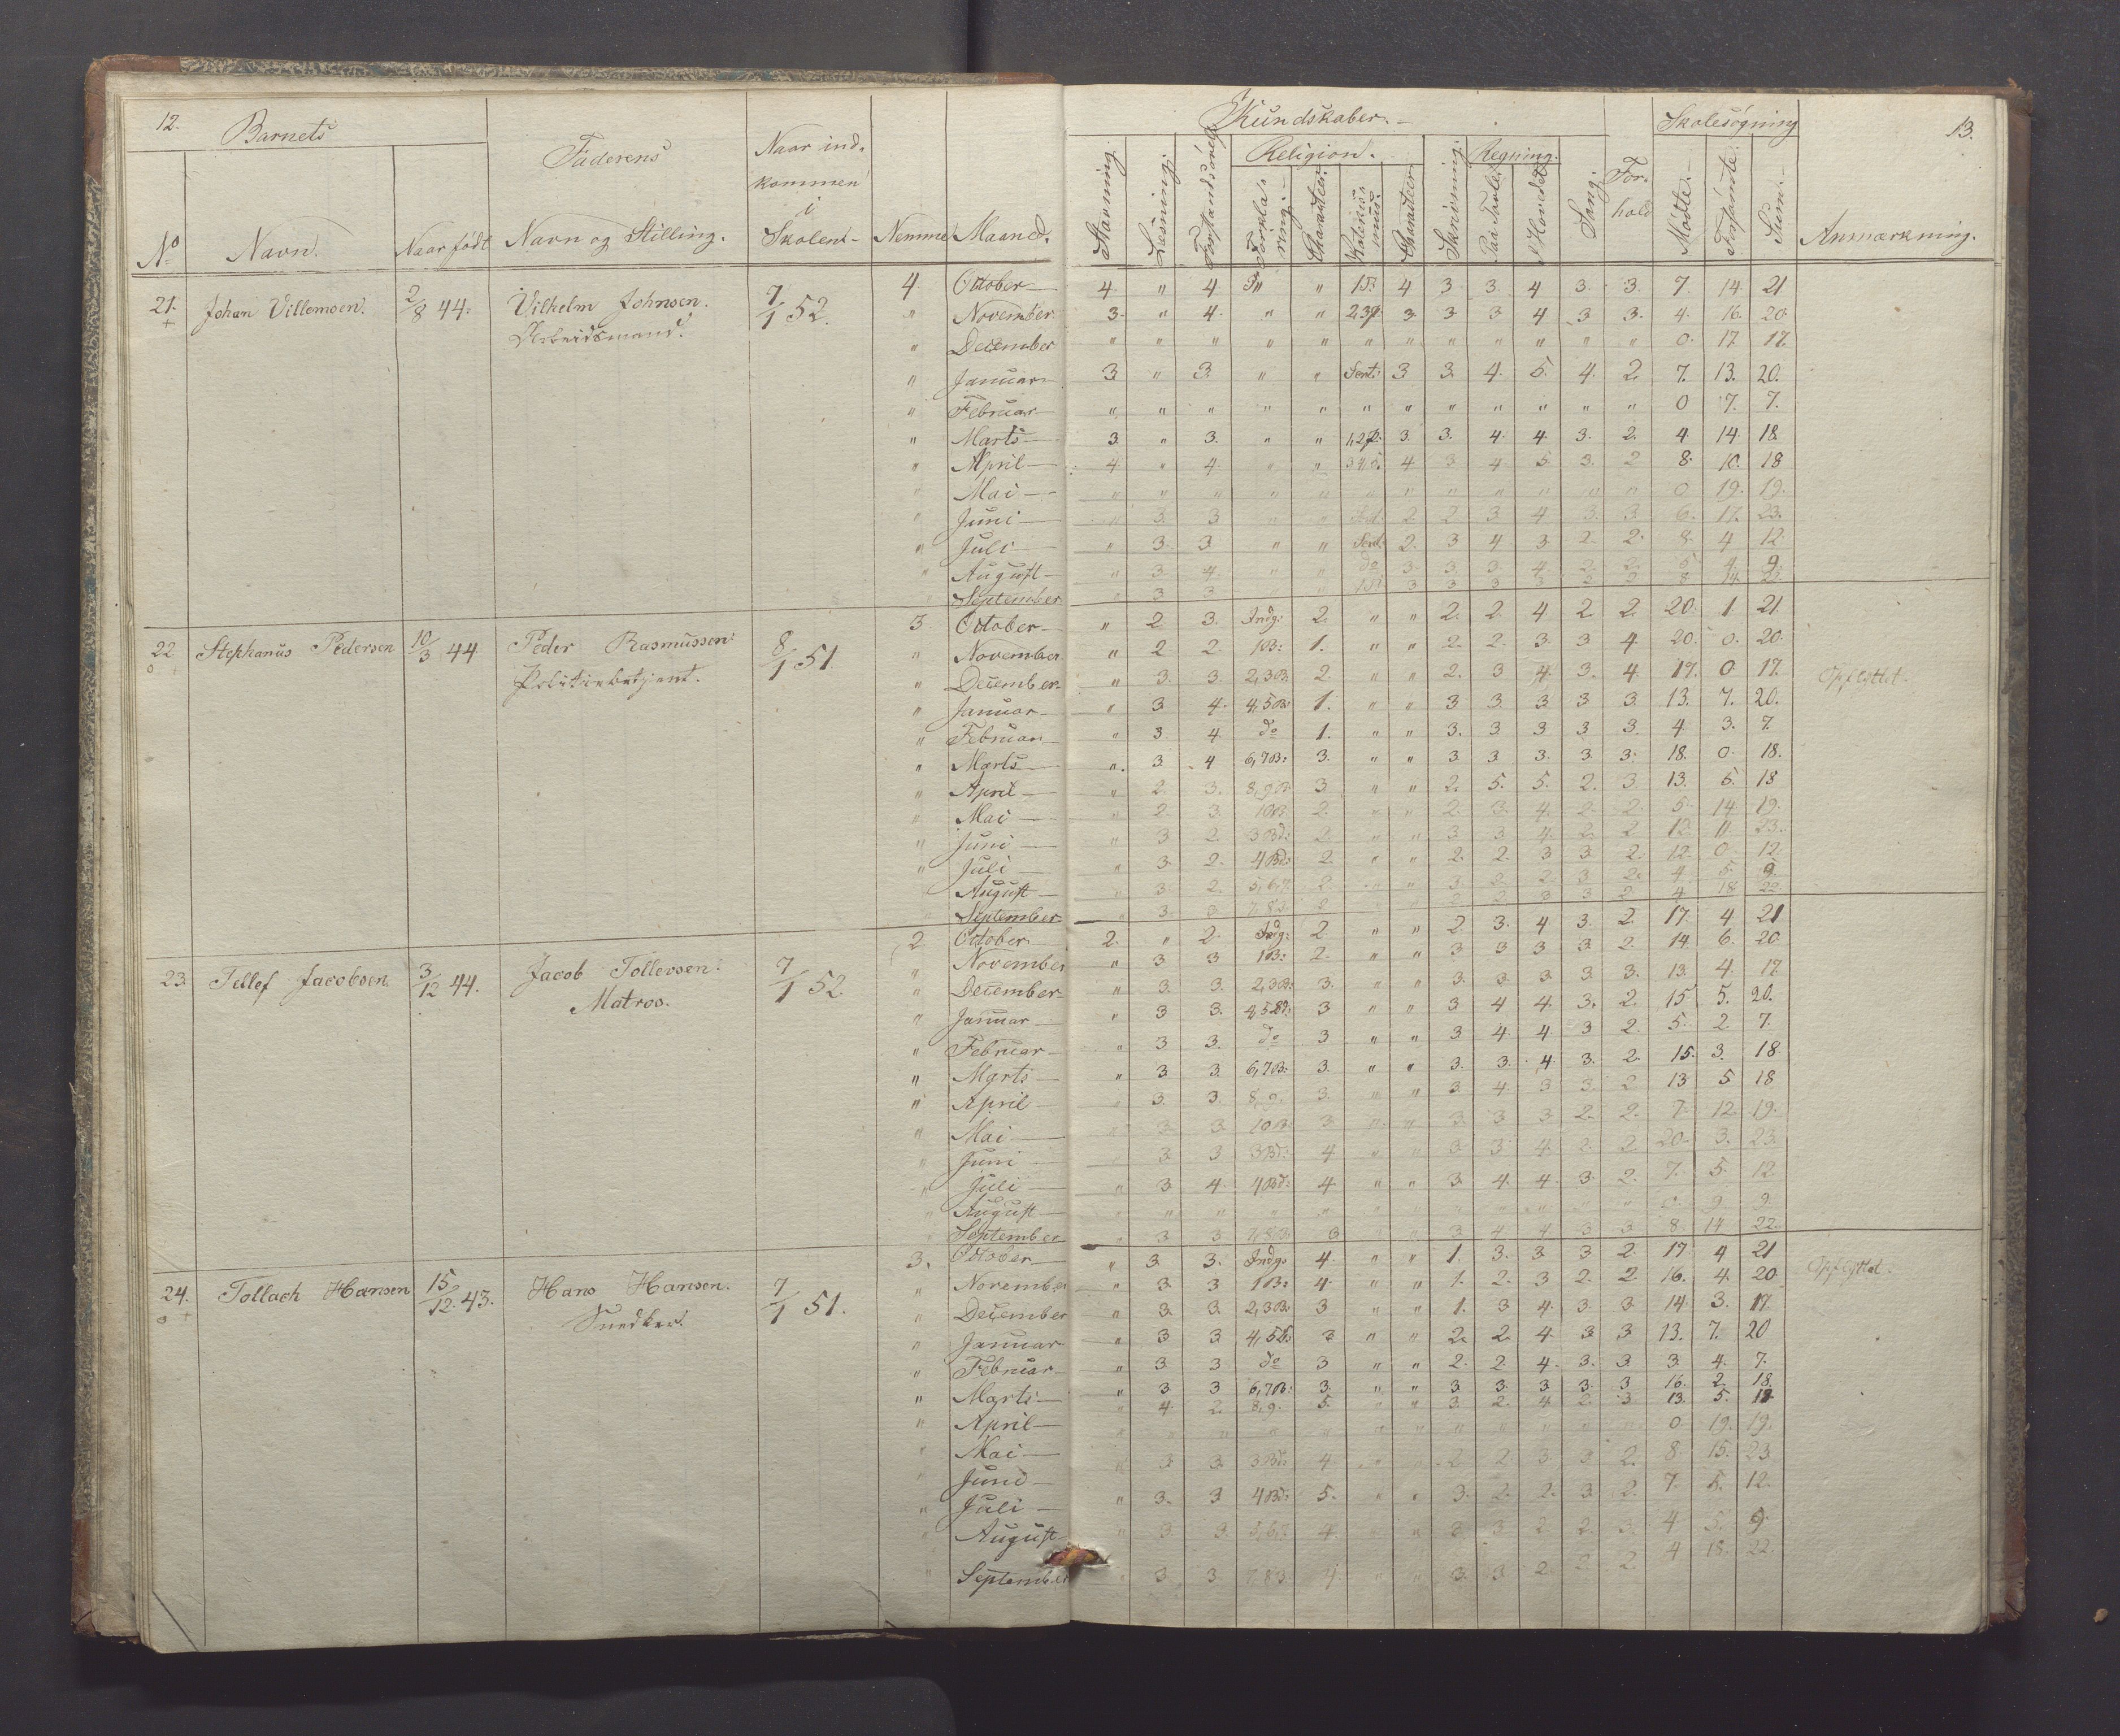 12.
Barnets
Faderens
Naar ind-
kommen
i
Skolen
No Navn. Naar født Navn og Stilling. Nemme Maaned.
Kundskaber.
Skolesøgning
13.
Religion.
Regning.
Stavning. Læsning. Forstandsøvelse Forklaring. Charakteer. Katekismus Charakteer Skrivning. Paa Tavle. I Hovedet Sang. Forhold Mødte. Forsømte. Sum. Anmærkning.
21. Johan Villemsen. 2/8 44. Vilhelm Johnsen. 7/1 52. 4 October 4. " 4 " 4 3 3. 4 3. 3. 7. 14. 21
+ Arbeidsmand. " November 3. " 4. " " 3 3 3 4 3 3. 4. 16. 20
" December " " " " " " " " " " " " 0. 17. 17.
" Januar 3 " 3. " " Sent: 3 3. 4. 5. 4. 2. 7. 13. 20.
" Februar " " " " " " " " " " " " 0 7. 7.
" Marts 3. " 3. " " 3. 3. 4. 4. 3. 2. 4 14. 18
" April 4. " 4. " " 4 3 4 5 3. 2 8. 10. 18
" Mai " " " " " " " " " " " " 0 19. 19.
" Juni " 3. 3 " " 2 2 3 4 3. 3. 6. 17. 23.
" Juli " 3. 3. " " Sent. 2. 3 4 3 2. 2. 8. 4 12
" August " 3. 4. " " do 3. 3. 3. 4. 2. 2. 5 4. 9.
September " 3 3 3 3 3 3 2 2 8 14. 22
22 Stephanus Pedersen 10/3 44 Peder Rasmussen. 8/1 51. 3 October " 2 3. Indg: 2. " " 2. 2. 4 2 2. 20. 1 21.
o Politiebetjent. " November " 2 2. 1B: 1. " " 2. 2. 3. 3 4 20. 0. 20.
" December " 3. 3. 2,3B. 2. " " 2. 3 4. 3. 4. 17. 0. 17. Opflyttet.
" Januar " 3 4. 4,5B: 1. " " 3 3. 3 3 3. 13. 7. 20.
" Februar " 3 4 do 1. " " 3. 3 3 3 3. 4 3. 7.
" Marts " 3. 4 6,7B: 3. " " 3 3. 3. 3. 3. 18. 0. 18.
" April " 2 3. 8,9B. 3 " " 2. 5. 5. 2. 3 13. 5. 18
" Mai " 2. 3. 10B. 2. " " 2. 3. 4. 2. 2. 5. 14. 19.
" Juni " 3 2. 3Bd: 2. " " 3. 3 4. 2. 2 12. 11. 23.
" Juli " 3. 2. 4Bd: 2. " " 2. 2. 3 3 2. 12. 0. 12
August " 3. 2. 5,6,7. 2. " " 3. 2 2. 3 2. 4. 5. 9
September " 3. 3. 2 2 2 3 3 2. 4 18. 22
23. Tellef Jacobsen. 3/12 44. Jacob Tollevsen. 7/1 52. 2 October 2. " 2. Indg: 2 " " 2 3. 4 3. 2. 17. 4 21
Matros. " November " 3 3 1B: 2. " " 3 3 3 3. 2. 14. 6. 20
" December " 3. 3. 2,3B. 3. " " 3. 3. 3. 3. 3. 13. 4. 17.
" Januar " 3 3. 3 " " 3 4 4. 3. 2. 15 5. 20.
" Februar " 3 3. do 3 " " 3. 4 4 3 2. 5. 2. 7.
" Marts " 3 3. 6,7B: 3. " " 3. 3. 4. 3. 2. 15. 3. 18
" April " 3. 3. 8,9. 3. " " 3. 4. 3 3. 2 13 5 18
" Mai " 3 3. 10B. 3 " " 3. 3 3 2. 2. 7. 12. 19.
" Juni " 3. 3 3Bd: 4 " " 3 3. 4. 2. 2. 20. 3. 23.
" Juli " 3. 4. 4Bd: 4 " " 3. 4. 4. 3. 2. 7. 5. 12.
" August " " " " " " " " " " " " 0. 9. 9.
" September " 3 3 7,8B. 3 " 3. 4 4 3 3 8. 14 22.
24. Tollach Hansen 15/12. 43. Hans Hansen. 7/1 51. 3. October " 3 3. Indg. 4. " " 1. 3. 3 3 2. 17 4 21 Opflyttet.
o + Snedker. " November " 3. 3 1B: 4. " " 1. 2. 3 2. 2 16. 4. 20
" December " 3. 3. 2,3B. 3 " " 1. 3 4. 3. 3. 14. 3. 17.
" Januar " 3. 3 4,5B. 3 " " 2. 2. 4. 3 3 13. 7. 20
" Februar " 3. 3 do 3 " " 2. 2. 4. 3. 3. 3. 4. 7.
" Marts " 3 3 6,7B: 3. " " 3 3. 3. 3. 3 16. 2. 18.
" April " 4. 2. 8,9. 5. " " 3. 2. 4 2. 3 13. 5. 18
" Mai " " " " " " " " " " " " 0 19. 19.
" Juni " 3. 3. 3Bd: 4 " " 2 2 3. 3. 2. 8. 15. 23
" Juli " 3. 3 4Bd: 5. " " 3. 2. 2. 3. 2. 7. 5. 12.
" August " 3. 3. 4. " " 3 3. 2. 2. 3. 4. 5. 9
" September " 3. 3 4. " " 3. 3. 2. 2. 2. 4 18. 22.